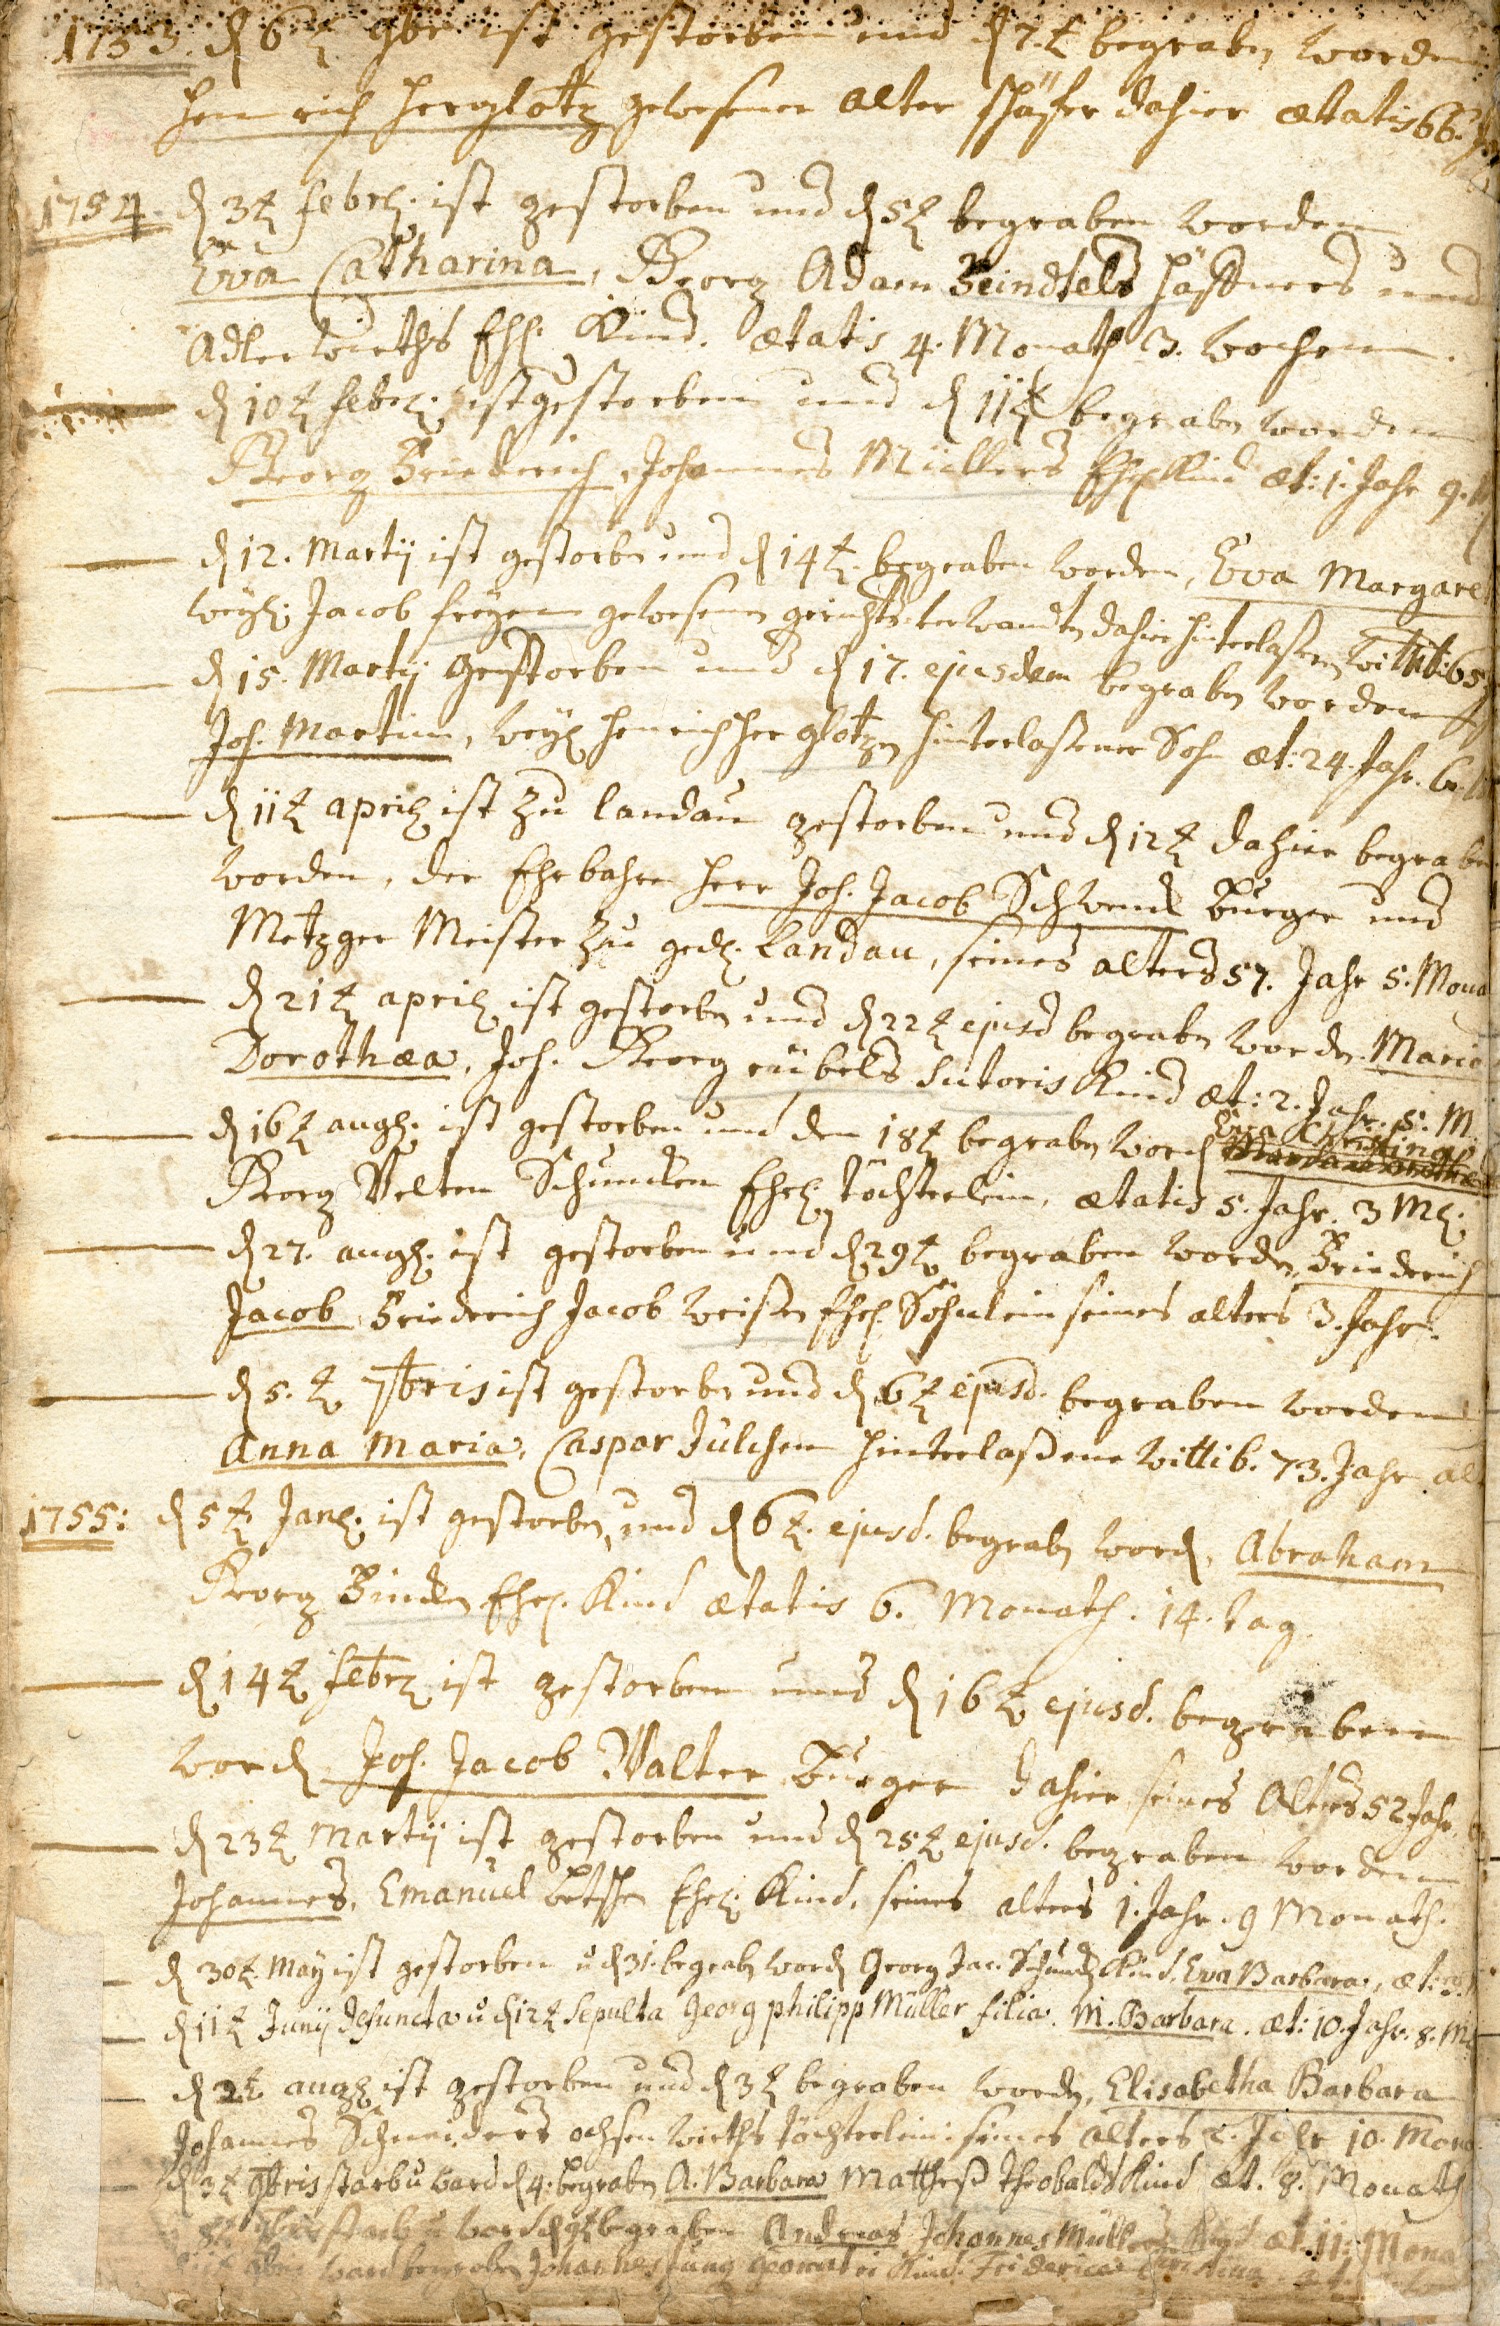 1753 d 6t. 9br ist gestorben und d 7.t begraben worden
Henrich Herglotz gewesener alter schäfer dahier ætatis 66. J.
1754. d 3t febr. ist gestorben und d 5t begraben worden
Eva Catharina, Georg Adam Beindtels Häffners und
Adlerwirths Ehl. Kind. ætatis 4. Monath 3. wochen.
d 10t febr. ist gestorben und d 11t begraben worden
Georg Friederich, Johannes Müllers Ehel Kind æt: 1. Jahr 9.
d 12. Martij ist gestorben und d 14t. begraben worden, Eva Margare
weyl. Jacob freyen gewesenen gerichts verwandten dahier hinterlaßene Wittib 65
d 15. Martij gestorben und d 17. ejusdem begraben worden
Joh. Martin, weyl Henrich Herglotzen hinterlaßener Sohn æt: 24. Jahr. 6.
d 11t april ist zu Landau gestorben und d 12t dahier begraben
worden, der Ehrbahre Herr Joh. Jacob Schwenck Burger und
Metzger Meister zu ged. Landau, seines alters 57. Jahr 5. Mona
d 21t april ist gestorben und d 22t ejusd begraben worden. Maria
Dorothæa, Joh. Georg rübels Sutoris Kind æt: 2. Jahr. 5. M.
d 16t aug. ist gestorben und den 18t begraben word Eva Christina
Georg Velten Schuncken Ehel töchterlein, ætatis 5. Jahr. 3 M.
d 27. aug. ist gestorben und d 29t begraben worden, Friederich
Jacob, Friederich Jacob weisen Ehel. Söhnlein seines alters 3. Jahr.
d 5. t 7bris ist gestorben und d 6t ejusd. begraben worden
Anna Maria, Caspar Jülchen hinterlaßene Wittib. 73. Jahr al
1755: d 5t Jan. ist gestorben, und d 6t. ejusd. begraben word, Abraham
Georg Bincken Ehel. Kind ætatis 6. Monath. 14. tag.
d 14t febr ist gestorben und d 16t ejusd. begraben
word Joh. Jacob Walter Burger dahier seines Alters 52 Jahr.
d 23t Martij ist gestorben und d 25t ejusd. begraben worden
Johannes, Emanuel Ehel. Kind, seines alters 1. Jahr. 9 Monath.
d 30t. May ist gestorben u d 31. begraben word Georg Jac. Schunck Kind, Eva Barbara, æt: 3.
d 11t Junij defuncta u d 12t Sepulta Georg philipp Müller filia. M. Barbara. æt: 10. Jahr. 8. M
d 2t aug ist gestorben und d 3t begraben worden, Elisabetha Barbara
Johannes Schneiders ochsen wirths töchterlein: seines alters 2. Jahr 10. Mona
d 3t 9bris starb u ward d 4. begraben A. Barbara Mattheß theobalds Kind æt. 8. Monath
8t starb u ward d 9t begraben Andreas Johannes Müllers Kind æt. 11: Mona
ward begraben Johannes Jung Kind. Friderica Christina